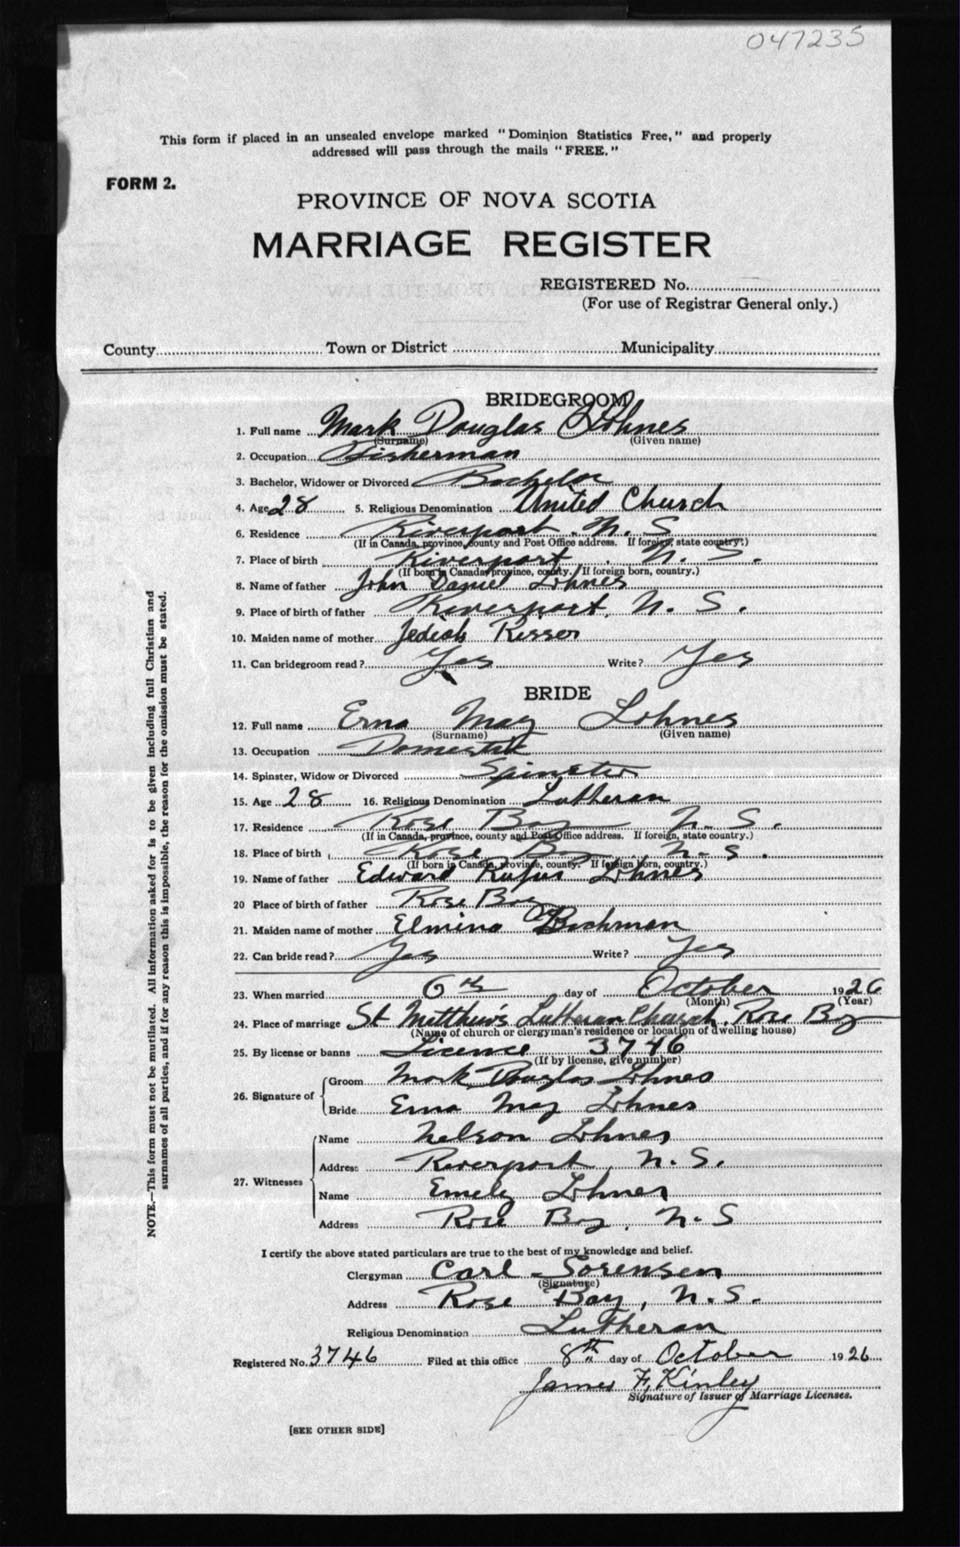 047235
This form if placed in an unsealed envelope marked "Dominion Statistics Free," and properly
addressed will pass through the mails "FREE."
FORM 2.
PROVINCE OF NOVA SCOTIA
MARRIAGE REGISTER
REGISTERED No.
(For use of Registrar General only.)
County Town or District Municipality
BRIDEGROOM
1. Full name Mark Douglas Lohnes
(Surname) (Given name)
2. Occupation Fisherman
3. Bachelor, Widower or Divorced Bachelor
4. Age 28 5. Religious Denomination United Church
6. Residence Riverport N. S.
(If in Canada, province, county and Post Office address. If foreign, state country.)
7. Place of birth Riverport, N. S.
(If born in Canada, province, county. If foreign born, country.)
8. Name of father John Daniel Lohnes
9. Place of birth of father Riverport, N. S.
10. Maiden name of mother Jediah Risser
11. Can bridegroom read? Yes Write? Yes
BRIDE
12. Full name Erna May Lohnes
(Surname) (Given name)
13. Occupation Domestic
14. Spinster, Widow or Divorced Spinster
15. Age 28 16. Religious Denomination Lutheran
17. Residence Rose Bay N. S.
(If in Canada, province, county and Post Office address. If foreign, state country.)
18. Place of birth Rose Bay N. S.
(If born in Canada, province, county. If foreign born, country.)
19. Name of father Edward Rufus Lohnes
20 Place of birth of father Rose Bay
21. Maiden name of mother Elmina Bachman
22. Can bride read? Yes Write? Yes
23. When married 6th day of October 1926
(Month) (Year)
24. Place of marriage St Matthew's Lutheran Church, Rose Bay
(Name of church or clergyman's residence or location of dwelling house)
25. By license or banns Licence 3746
(If by license, give number)
26. Signature of Groom Mark Douglas Lohnes
Bride Erna May Lohnes
27. Witnesses Name Nelson Lohnes
Address Riverport, N. S.
Name Emely Lohnes
Address Rose Bay, N. S
I certify the above stated particulars are true to the best of my knowledge and belief.
Clergyman Carl Sorensen
(Signature)
Address Rose Bay, N. S.
Religious Denomination Lutheran
Registered No. 3746 Filed at this office 8th day of October 1926
James F. Kinley
Signature of Issuer of Marriage Licenses.
[SEE OTHER SIDE]
NOTE.—This form must not be mutilated. All information asked for is to be given including full Christian and
surnames of all parties, and if for any reason this is impossible, the reason for the omission must be stated.